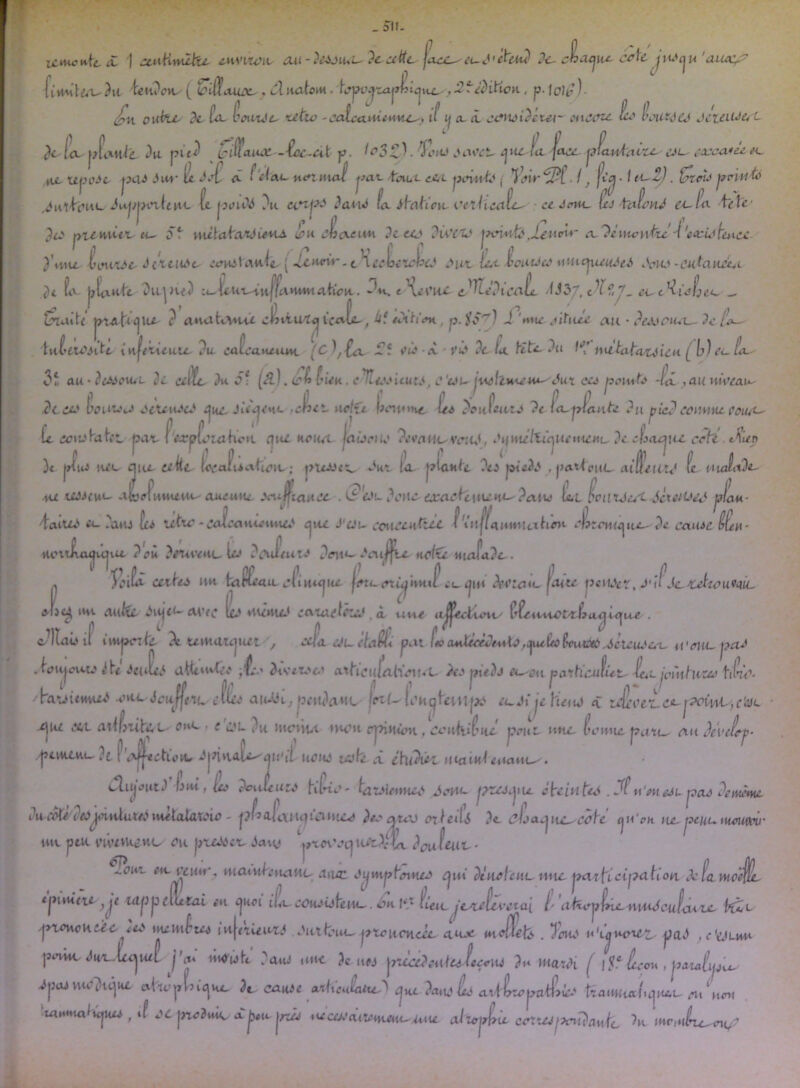 - 511 -
remonte à 1 centimètre environ au-dessus de cette face et s'étend de chaque côté jusqu'aux
limites du tendon (Tillaux, Anatom. topographique, 2e édition, p. 1018).
En outre de la bourse rétro-calcanéenne, il y a à considérer encore les bourses séreuses
de la plante du pied (Tillaux - loc-cit p. 1032). Vous savez que la face plantaire est excavée et
ne repose pas sur le sol à l'état normal par tous ces points ( Voir Pl. 1, fig. 1 et 2). Trois points
surtout supportent le poids du corps dans la station verticale : ce sont les talons et la tête
des premier et 5e métatarsiens. En chacun de ces divers points, Lenoir a démontré l'existence
d'une bourse séreuse constante (Lenoir - Recherches sur les bourses muqueuses sous-cutanées
de la plante du pied et leur inflammation. In, Revue Médicale 1837, No 7 et Richet
Traité pratique d'anatomie chirurgicale, 4e édition, p. 857) L'une située au-dessous de la
tubérosité inférieure du calcanéum (c), la 2e vis-à-vis de la tête du 1er métatarsien (b) et la
3e au-dessous de celle du 5e (a). Eh bien, Messieurs, c'est justement sur ces points-là, au niveau
de ces bourses séreuses que siègent, chez notre homme les douleurs de la plante du pied comme vous
le constatez par l'exploration que nous faisons devant vous, symétriquement de chaque côté. Rien
de plus net que cette localisation ; pressez sur la plante des pieds, partout ailleurs le malade
ne ressent absolument aucune souffrance. C'est donc exactement dans les bourses séreuses plan-
taires et dans les rétro-calcanéennes que s'est concentrée l'inflammation chronique de cause blen-
norrhagique d'où dérivent les douleurs dont souffre notre malade.
Voilà certes un tableau clinique fort original et qui devrait faire penser, s'il se retrouvait
chez un autre sujet avec les mêmes caractères, à une affection blennorrhagique.
Mais il importe de remarquer, cela est établi par les antécédents, que les bourses séreuses n'ont pas
toujours été seules atteintes ; les diverses articulations des pieds et en particulier les jointures tibio-
tarsiennes ont souffert elles aussi, pendant fort longtemps et si je tiens à relever ce point, c'est
que ces arthrites ont, c'est du moins mon opinion, contribué pour une bonne part au dévelop-
pement de l'affection spinale qu'il nous reste à étudier maintenant.
Aujourd'hui, les douleurs tibio-tarsiennes sont presque éteintes. Il n'en est pas de même
du côté des jointures métatarso-phalangiennes des gros orteils de chaque côté qu'on ne peut mouvoir
un peu vivement ou presser sans provoquer de la douleur.
Pour en venir, maintenant, aux symptômes qui dénotent une participation de la moelle
épinière, je rappellerai en quoi ils consistent. En 1er lieu je relèverai l'atrophie musculaire très
prononcée des membres inférieurs, surtout prononcée aux mollets. Vous n'ignorez pas, c'est un
point sur lequel j'ai insisté dans une de nos précédentes leçons du mardi ( 18e leçon, paralysie
spasmodique atrophique de cause articulaire) que dans les arthropathies traumatiques ou non
traumatiques, il se produit à peu près nécessairement une atrophie correspondante du membre ou